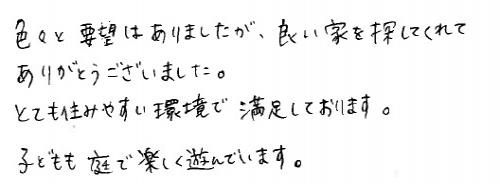 色々と要望はありましたが、良い家を探してくれて
ありがとうございました。
とても住みやすい環境で満足しております。
子どもも庭で楽しく遊んでいます。